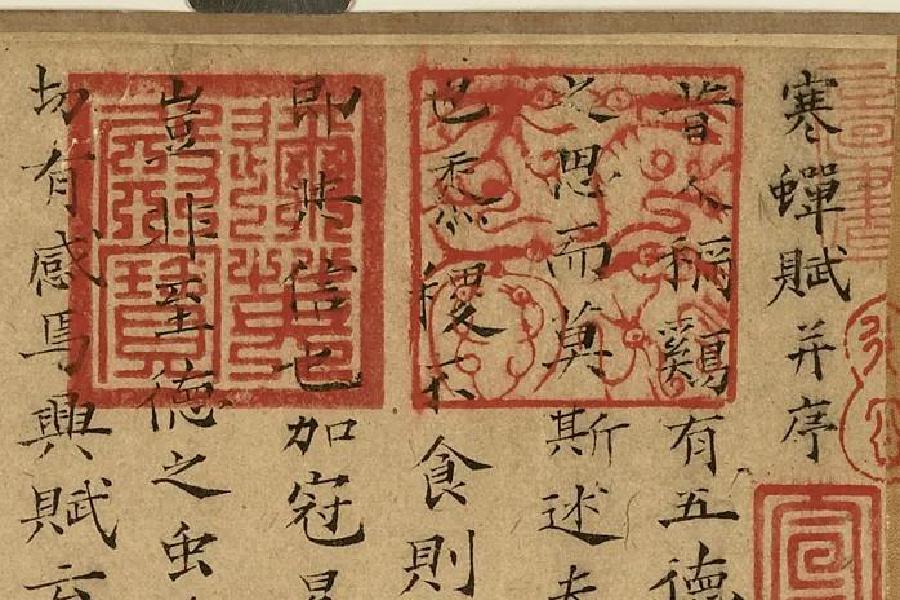 寒蟬賦并序
昔人稱鷄有五德
之思而莫斯述夫
也黍稷不食則
即其信也加冠
豈非至德之虫
切有感焉興賦云